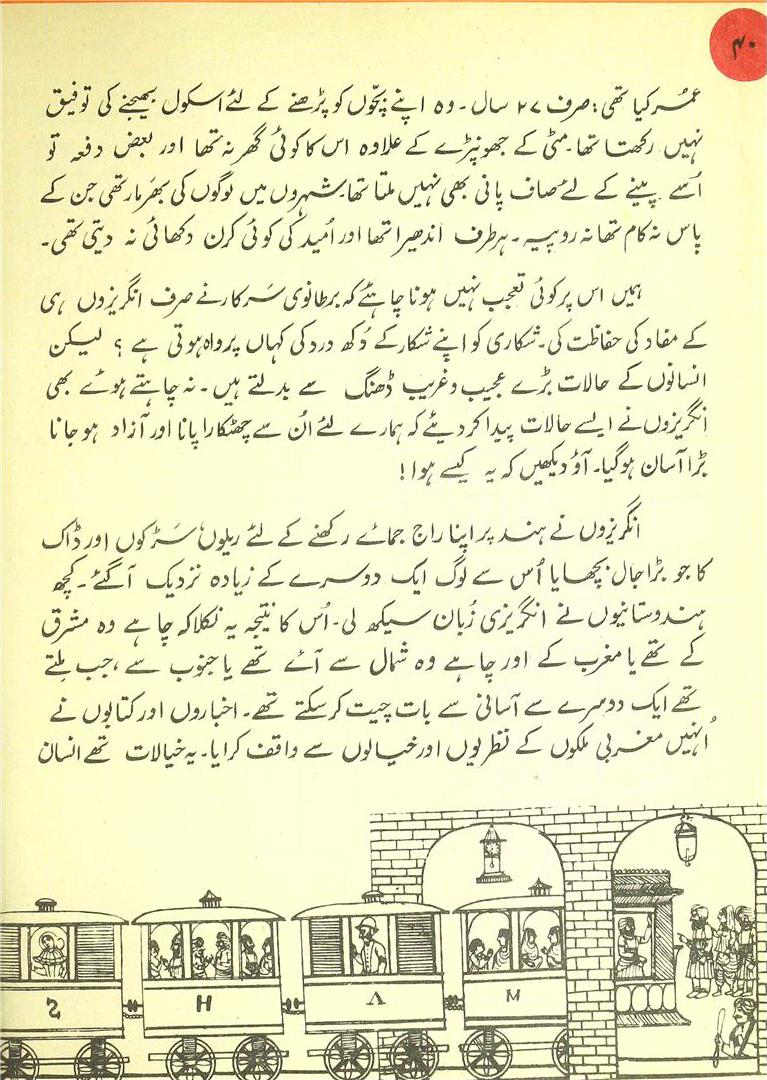 ۴۰
عمر کیا تھی: صرف ۲۷ سال۔ وہ اپنے بچّوں کو پڑھنے کے لئے اسکول بھیجنے کی توفیق
نہیں رکھتا تھا۔ مٹی کے جھونپڑے کے علاوہ اس کا کوئی گھر نہ تھا اور بعض دفعہ تو
اُسے پینے کے لئے صاف پانی بھی نہیں ملتا تھا۔ شہروں میں لوگوں کی بھَرمار تھی جن کے
پاس نہ کام تھا نہ روپیہ۔ ہر طرف اندھیرا تھا اور اُمید کی کوئی کرن دکھائی نہ دیتی تھی۔
ہمیں اس پر کوئی تعجب نہیں ہونا چاہئے کہ برطانوی سَرکار نے صرف انگریزوں ہی
کے مفاد کی حفاظت کی۔ شکاری کو اپنے شکار کے دُکھ درد کی کہاں پرواہ ہوتی ہے ؟ لیکن
انسانوں کے حالات بڑے عجیب و غریب ڈھنگ سے بدلتے ہیں۔ نہ چاہتے ہوئے بھی
انگریزوں نے ایسے حالات پیدا کر دیئے کہ ہمارے لئے اُن سے چھٹکارا پانا اور آزاد ہو جانا
بڑا آسان ہوگیا۔ آؤ دیکھیں کہ یہ کیسے ہوا!
انگریزوں نے ہند پر اپنا راج جمائے رکھنے کے لئے ریلوں، سَڑکوں اور ڈاک
کا جو بڑا جال بچھایا اُس سے لوگ ایک دوسرے کے زیادہ نزدیک آگئے۔ کچھ
ہندوستانیوں نے انگریزی زُبان سیکھ لی۔ اُس کا نتیجہ یہ نکلا کہ چاہے وہ مشرق
کے تھے یا مغرب کے اور چاہے وہ شمال سے آئے تھے یا جنوب سے ، جب ملتے
تھے ایک دوسرے سے آسانی سے بات چیت کر سکتے تھے۔ اخباروں اور کتابوں نے
اُنہیں مغربی ملکوں کے نظریوں اور خیالوں سے واقف کرایا۔ یہ خیالات تھے انسان
M
H